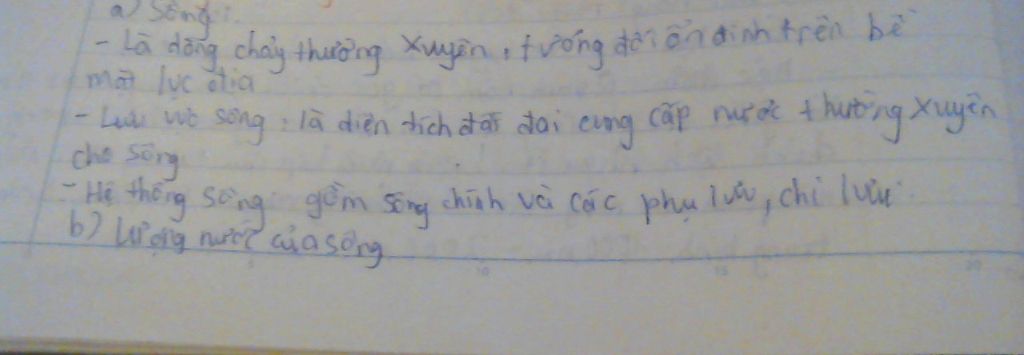 a) Sông:
- Là dòng chảy thường xuyên, tương đối ổn định trên bề
mặt lục địa
- Lưu vực sông: là diện tích đất đai cung cấp nước thường xuyên
cho sông
- Hệ thống sông gồm sông chính và các phụ lưu, chi lưu
b) Lượng nước của sông
5 10 15 20